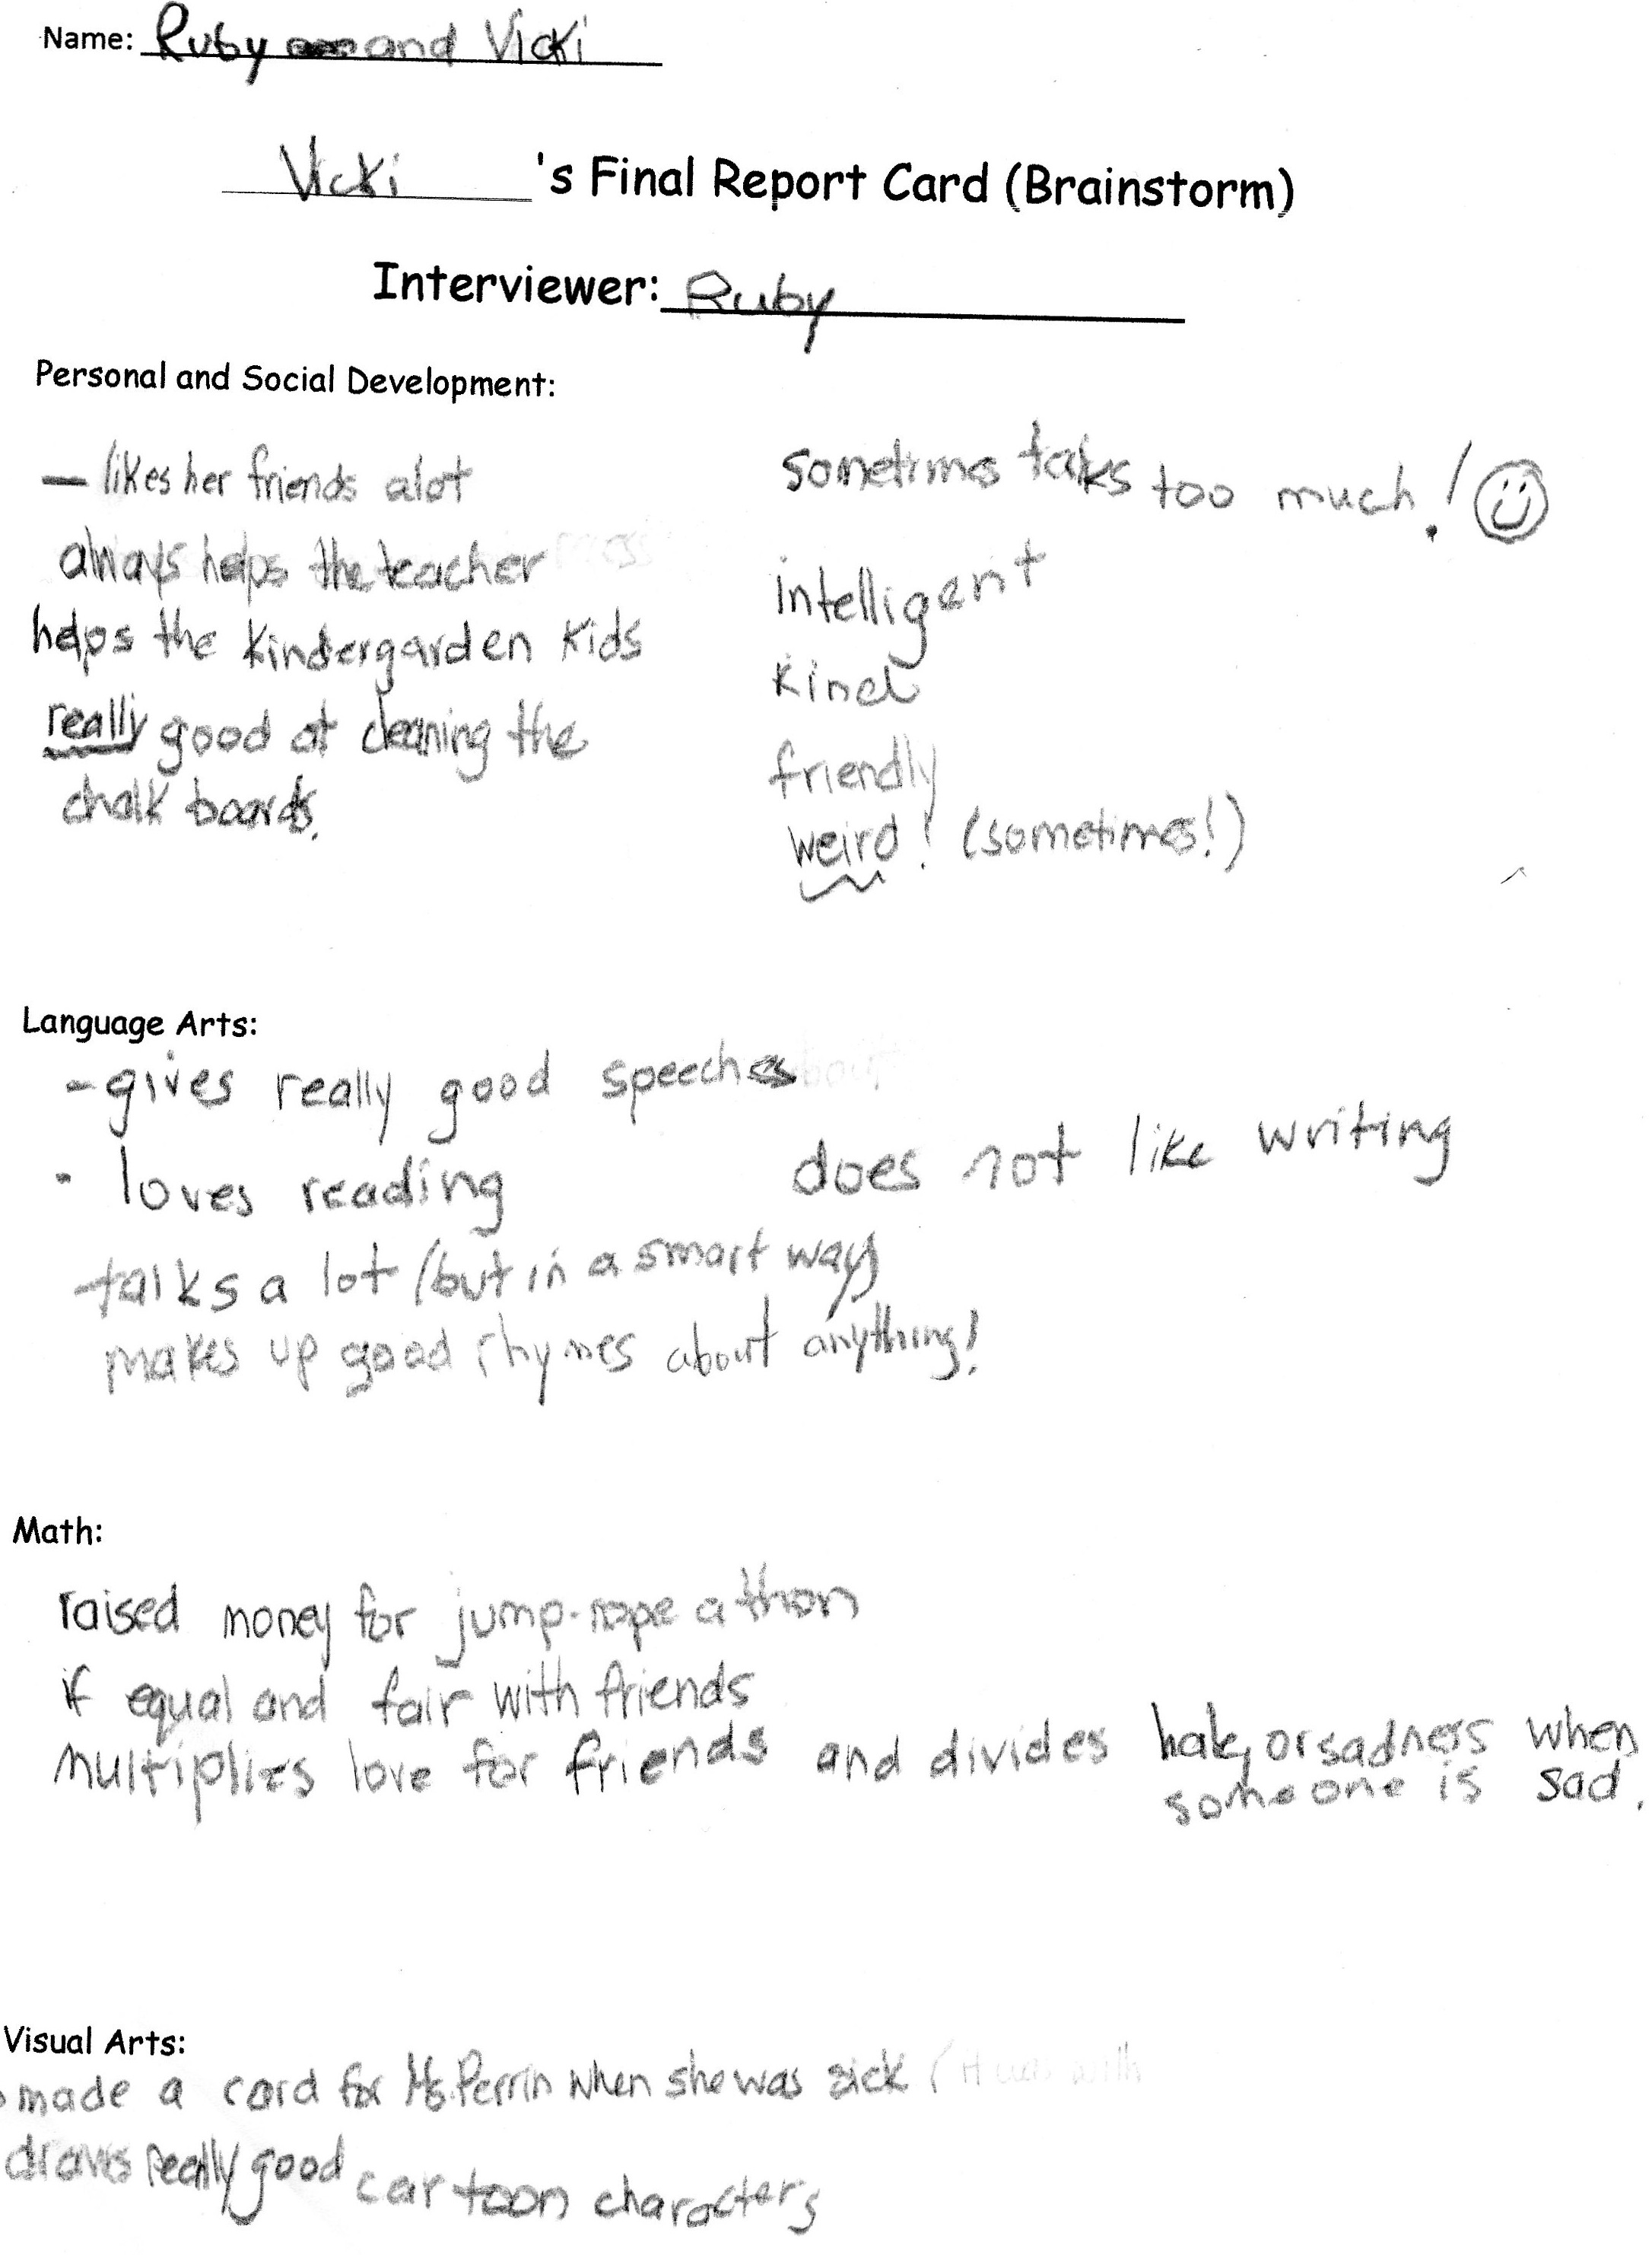 Name: Ruby and Vicki
Vicki 's Final Report Card (Brainstorm)
Interviewer: Ruby
Personal and Social Development:
– likes her friends alot
always helps the teacher
helps the kindergarden kids
really good at cleaning the
chalk boards.
sometimes talks too much!
intelligent
kind
friendly
weird! (sometimes!)
Language Arts:
- gives really good speeches
- loves reading
does not like writing
-talks a lot (but in a smart way)
makes up good rhymes about anything!
Math:
raised money for jump-rope a thon
if equal and fair with friends
multiplies love for friends and divides hate, or sadness when
someone is sad.
Visual Arts:
made a card for Ms. Perrin when she was sick (
draws really good cartoon characters